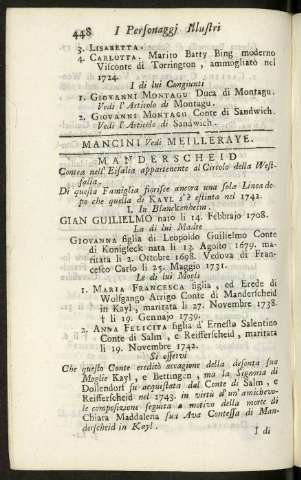 448 I Personaggj Illustri
3. LISABETTA.
4. CARLOTTA. Marito Batty Bing moderno
Visconte di Torrington, ammogliato nel
1724.
I di lui Congiunti
1. GIOVANNI MONTAGU Duca di Montagu.
Vedi l'Articolo di Montagu.
2. GIOVANNI MONTAGU Conte di Sandwich.
Vedi l'Articolo di Sandwich.
MANCINI Vedi MEILLERAYE.
MANDERSCHEID
Contea nell'Eifalia appartenente al Circolo della West-
falia.
Di questa Famiglia fiorisce ancora una sola Linea do-
po che quella di KAYL s'è estinta nel 1742.
I. In Blanckenheim.
GIAN GUILIELMO nato li 14. Febbrajo 1708.
La di lui Madre
GIOVANNA figlia di Leopoldo Guilielmo Conte
di Konigseck nata li 13. Agosto 1679. ma-
ritata li 2. Ottobre 1698. Vedova di Fran-
cesco Carlo li 25. Maggio 1731.
Le di lui Mogli
1. MARIA FRANCESCA figlia, ed Erede di
Wolfgango Arrigo Conte di Manderscheid
in Kayl, maritata li 27. Novembre 1738.
† li 19. Gennajo 1739.
2. ANNA FELICITA figlia d'Ernesto Salentino
Conte di Salm, e Reifferscheid, maritata
li 19. Novembre 1742.
Si osservi
Che questo Conte ereditò accagione della defonta sua
Moglie Kayl, e Bettingen, ma la Signoria di
Dollendorf fu acquistata dal Conte di Salm, e
Reifferscheid nel 1743. in virtù d'un'amichevo-
le composizione seguita a motivo della morte di
Chiara Maddalena sua Ava Contessa di Man-
derscheid in Kayl.
I di